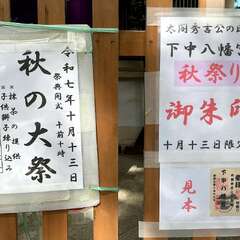 令和七年十月十三日
祭典開式 午前十時
秋の大祭
抹茶の提供
子供獅子練り込み
太閤秀吉公の
下中八幡宮
秋祭り
御朱印
十月十三日限定
見本